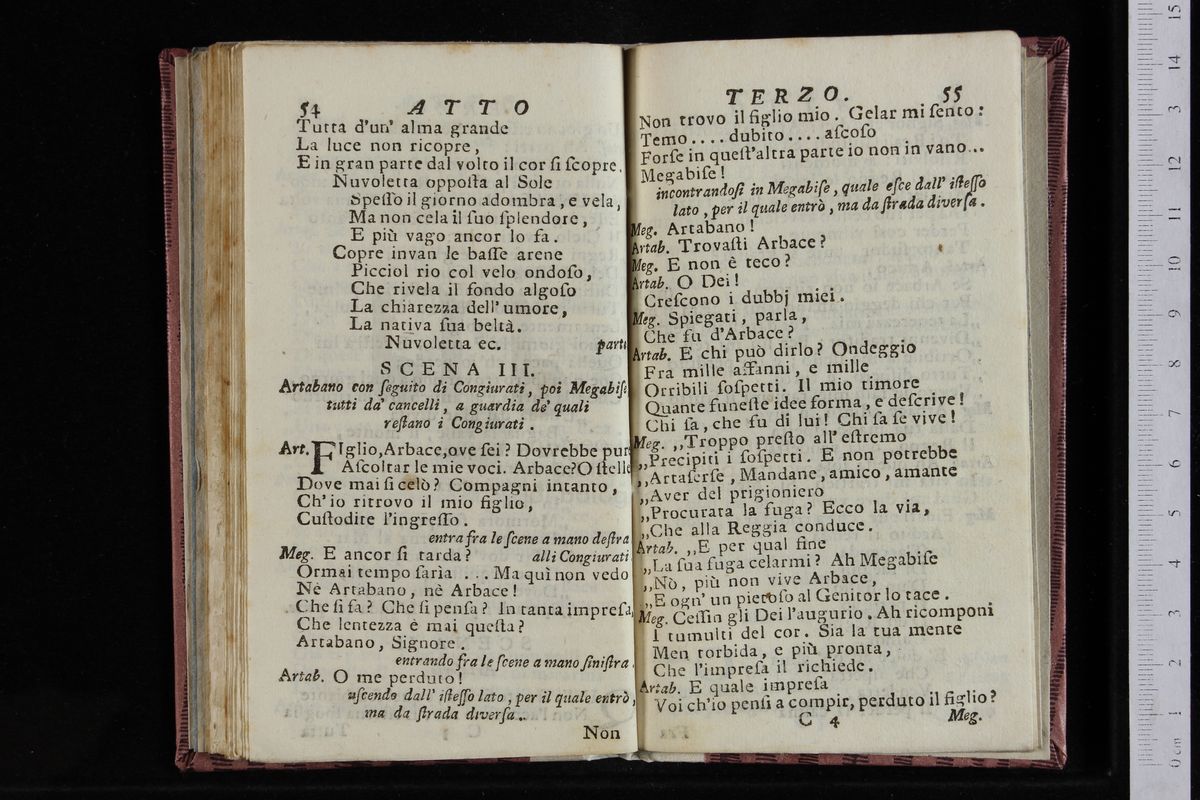 54 ATTO
Tutta d'un' alma grande
La luce non ricopre,
E in gran parte dal volto il cor si ſcopre.
Nuvoletta oppoſta al Sole
Speſſo il giorno adombra, e vela,
Ma non cela il ſuo ſplendore,
E più vago ancor lo fa.
Copre invan le baſſe arene
Picciol rio col velo ondoſo,
Che rivela il fondo algoſo
La chiarezza dell' umore,
La nativa ſua beltà.
Nuvoletta ec. parte
SCENA III.
Artabano con ſeguito di Congiurati, poi Megabiſe
tutti da' cancelli, a guardia de' quali
reſtano i Congiurati.
Art. FIglio, Arbace, ove ſei? Dovrebbe pure
Aſcoltar le mie voci. Arbace? O ſtelle
Dove mai ſi celò? Compagni intanto,
Ch' io ritrovo il mio figlio,
Cuſtodite l'ingreſſo.
entra fra le ſcene a mano deſtra
Meg. E ancor ſi tarda? alli Congiurati
Ormai tempo ſarìa ... Ma quì non vedo
Nè Artabano, nè Arbace!
Che ſi fa? Che ſi penſa? In tanta impreſa
Che lentezza è mai queſta?
Artabano, Signore.
entrando fra le ſcene a mano ſiniſtra.
Artab. O me perduto!
uſcendo dall' iſteſſo lato, per il quale entrò,
ma da ſtrada diverſa..
Non
TERZO. 55
Non trovo il figlio mio. Gelar mi ſento:
Temo.... dubito.... aſcoſo
Forſe in queſt'altra parte io non in vano...
Megabiſe!
incontrandoſi in Megabiſe, quale eſce dall' iſteſſo
lato, per il quale entrò, ma da ſtrada diverſa.
Meg. Artabano!
Artab. Trovaſti Arbace?
Meg. E non è teco?
Artab. O Dei!
Creſcono i dubbj miei.
Meg. Spiegati, parla,
Che fu d'Arbace?
Artab. E chi può dirlo? Ondeggio
Fra mille affanni, e mille
Orribili ſoſpetti. Il mio timore
Quante funeſte idee forma, e deſcrive!
Chi ſa, che fu di lui! Chi ſa ſe vive!
Meg. ,,Troppo preſto all' eſtremo
,,Precipiti i ſoſpetti. E non potrebbe
,,Artaſerſe, Mandane, amico, amante
,,Aver del prigioniero
,,Procurata la fuga? Ecco la via,
,,Che alla Reggia conduce.
Artab. ,,E per qual fine
,,La ſua fuga celarmi? Ah Megabiſe
,,Nò, più non vive Arbace,
,,E ogn' un pietoſo al Genitor lo tace.
Meg. Ceſſin gli Dei l'augurio. Ah ricomponi
I tumulti del cor. Sia la tua mente
Men torbida, e più pronta,
Che l'impreſa il richiede.
Artab. E quale impreſa
Voi ch'io penſi a compir, perduto il figlio?
C 4 Meg.
0 cm 1 2 3 4 5 6 7 8 9 10 11 12 13 14 15